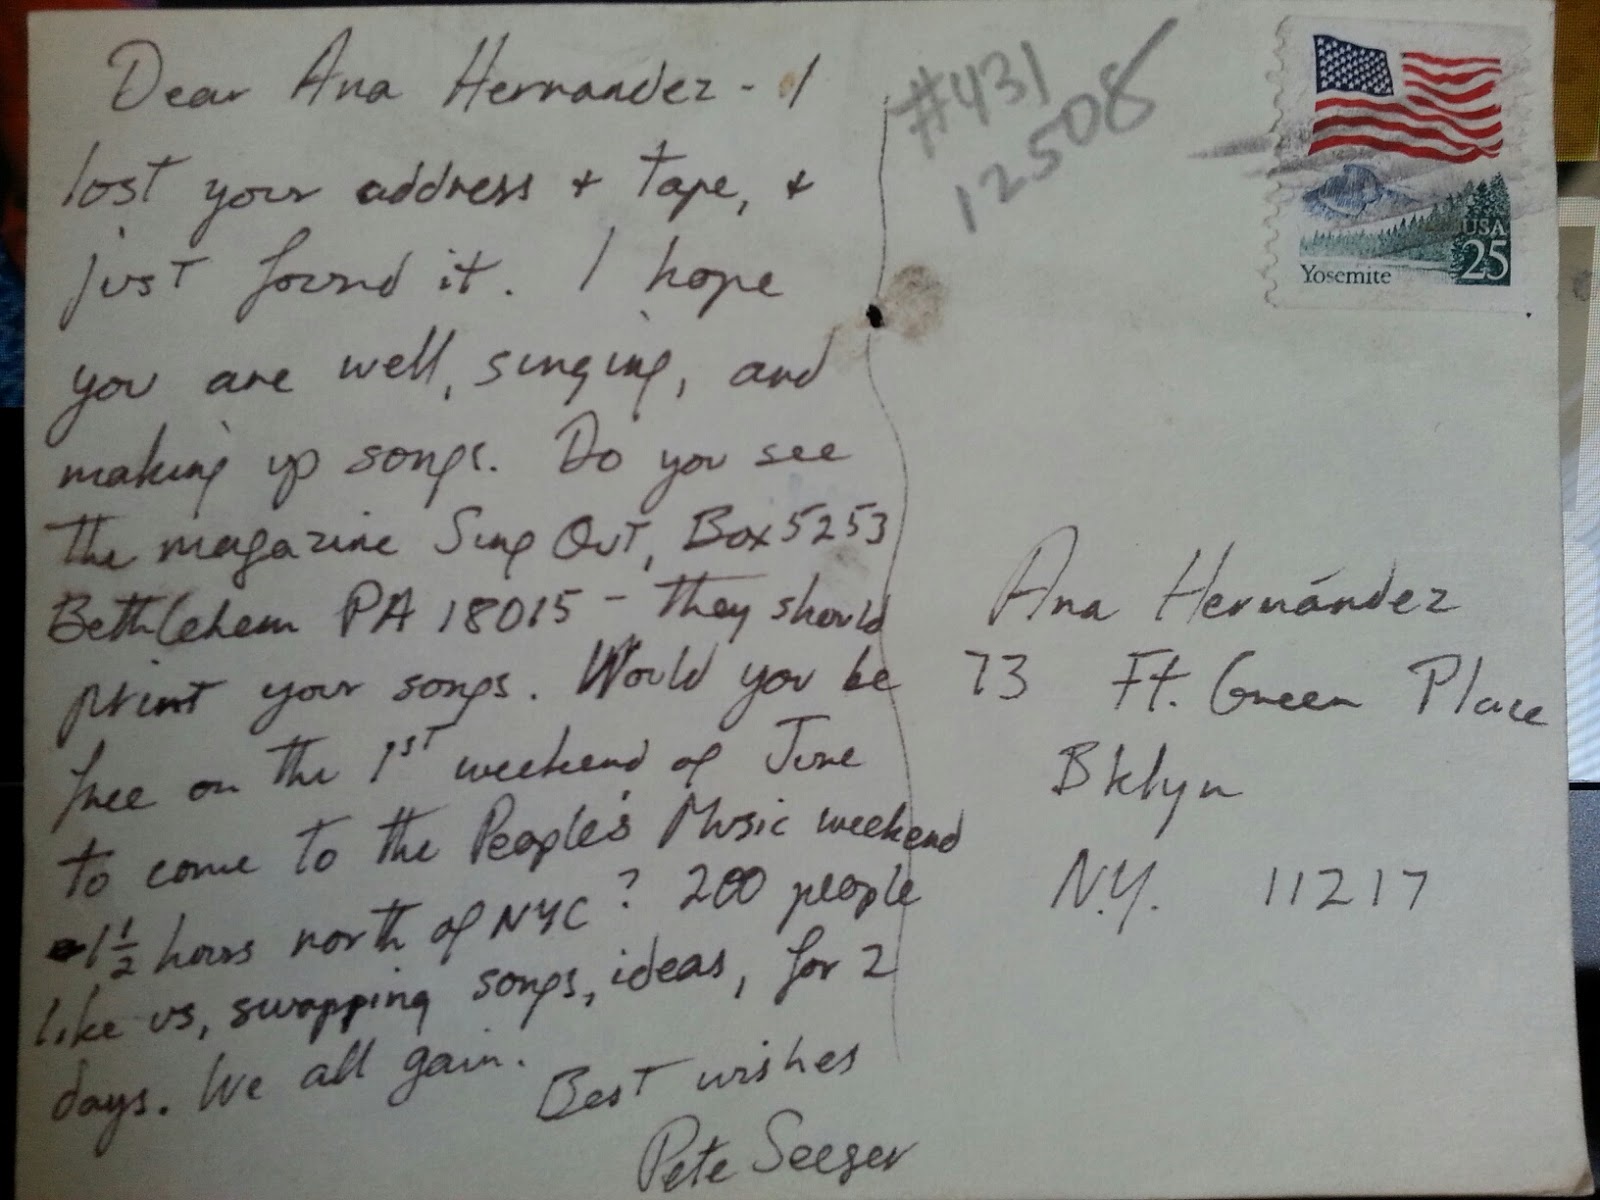 Dear Ana Hernandez - I
lost your address & tape, &
just found it. I hope
you are well, singing, and
making up songs. Do you see
the magazine Sing Out, Box 5253
Bethlehem PA 18015 - they should
print your songs. Would you be
free on the 1st weekend of June
to come to the People's Music weekend
- 1 1/2 hours north of NYC? 200 people
like us, swapping songs, ideas, for 2
days. We all gain.
Best wishes
Pete Seeger
#431
12508
USA
25
Yosemite
Ana Hernández
73 Ft. Green Place
Bklyn
N.Y. 11217